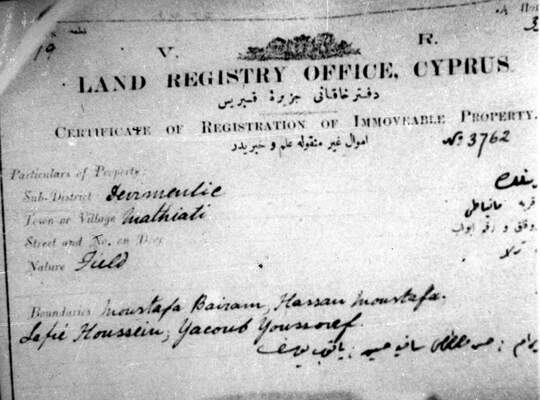 قطعه
19
V. R.
LAND REGISTRY OFFICE, CYPRUS
دفتر خاقانی جزیرهٔ قبریس
CERTIFICATE OF REGISTRATION OF IMMOVEABLE PROPERTY.
اموال غیر منقوله علم و خبریدر No 3762
Particulars of Property:
Sub-District Deirmenlic
Town or Village Mathiati قریه ماتیاطی
Street and No. on Door موقع و رقم ابواب
Nature Field
Boundaries Moustafa Bairam, Hassan Moustafa.
Safié Houssein, Yacoub Youssouf.